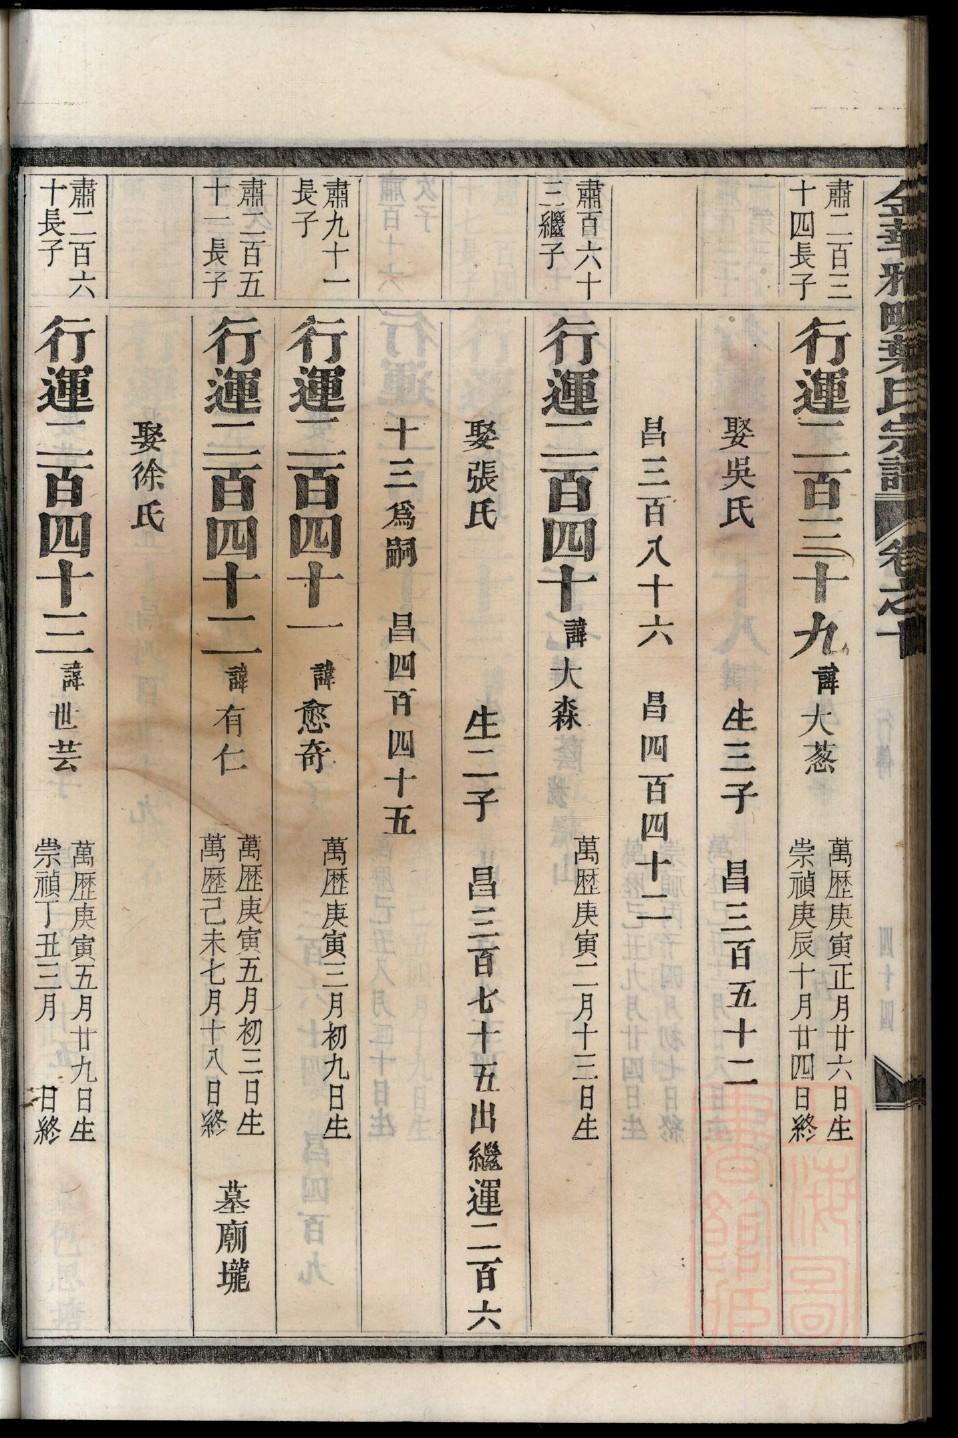 金華雅畈葉氏宗譜 卷之十
行傳 四十四
肅二百三十四長子
行運二百三十九 諱大葱 萬歷庚寅正月廿六日生 崇禎庚辰十月廿四日終
娶吳氏 生三子 昌三百五十二
昌三百八十六 昌四百四十二
肅百六十三繼子
行運二百四十 諱大森 萬歷庚寅二月十三日生
娶張氏 生二子 昌三百七十五出繼運二百六
十三爲嗣 昌四百四十五
肅九十一長子
行運二百四十一 諱愈奇 萬歷庚寅三月初九日生
肅二百五十一長子
行運二百四十二 諱有仁 萬歷庚寅五月初三日生 萬歷己未七月十八日終 墓廟壠
娶徐氏
肅二百六十長子
行運二百四十三 諱世芸 萬歷庚寅五月廿九日生 崇禎丁丑三月 日終